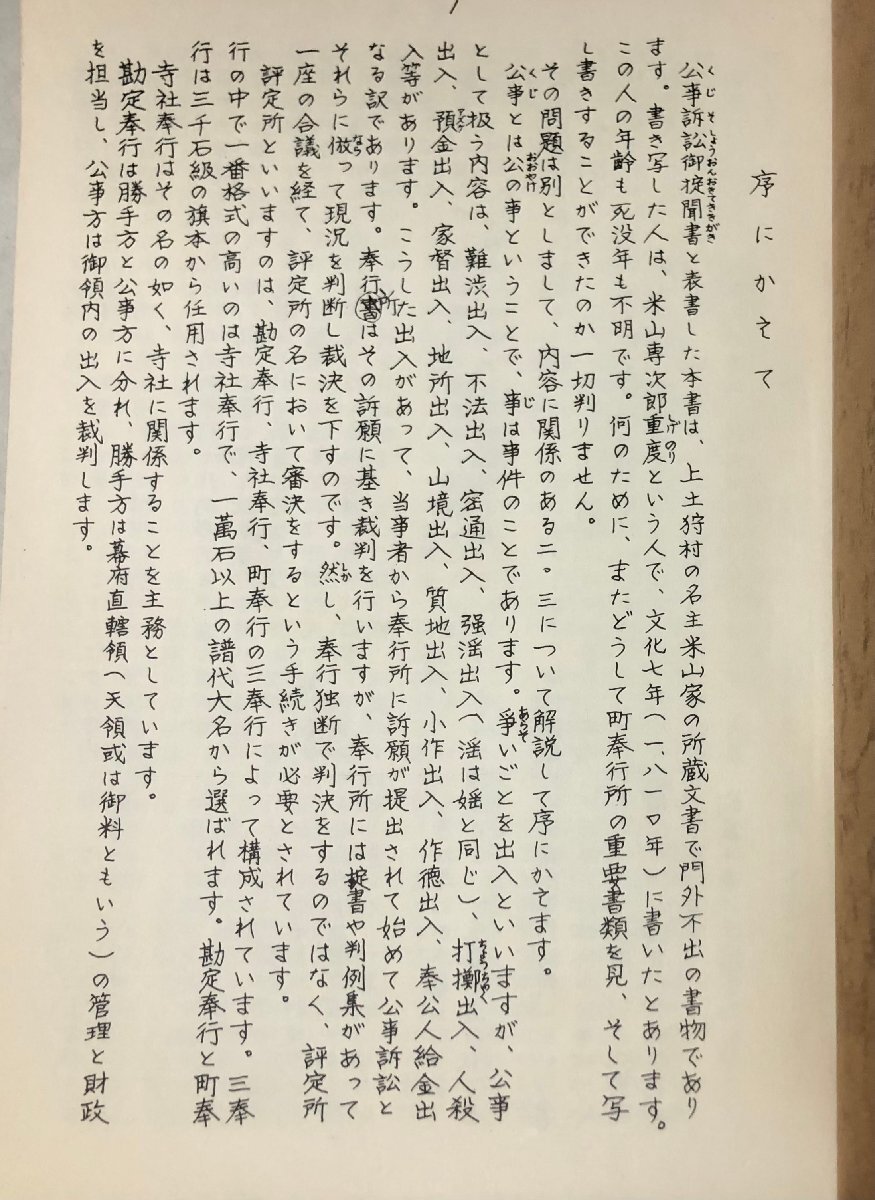 序にかえて
公事訴訟御掟聞書と表書した本書は、上土狩村の名主米山家の所蔵文書で門外不出の書物であり
ます。書き写した人は、米山専次郎重度という人で、文化七年(一、八一〇年)に書いたとあります。
この人の年齢も死没年も不明です。何のために、またどうして町奉行所の重要書類を見、そして写
し書きすることができたのか一切判りません。
その問題は別としまして、内容に関係のある二。三について解説して序にかえます。
公事とは公の事ということで、事は事件のことであります。爭いごとを出入といいますが、公事
として扱う内容は、難渋出入、不法出入、密通出入、强滛出入(滛は婬と同じ)、打擲出入、人殺
出入、預金出入、家督出入、地所出入、山境出入、質地出入、小作出入、作徳出入、奉公人給金出
入等があります。こうした出入があって、当事者から奉行所に訴願が提出されて始めて公事訴訟と
なる訳であります。奉行所はその訴願に基き裁判を行いますが、奉行所には掟書や判例集があって
それらに倣って現況を判断し裁決を下すのです。然し、奉行独断で判決をするのではなく、評定所
一座の合議を経て、評定所の名において審決をするという手続きが必要とされています。
評定所といいますのは、勘定奉行、寺社奉行、町奉行の三奉行によって構成されています。三奉
行の中で一番格式の高いのは寺社奉行で、一萬石以上の譜代大名から選ばれます。勘定奉行と町奉
行は三千石級の旗本から任用されます。
寺社奉行はその名の如く、寺社に関係することを主務としています。
勘定奉行は勝手方と公事方に分れ、勝手方は幕府直轄領(天領或は御料ともいう)の管理と財政
を担当し、公事方は御領内の出入を裁判します。